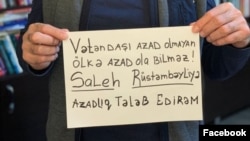 Vətəndaşı azad olmayan
ölkə azad ola bilməz!
Saleh Rüstəmbəyliyə
Azadlıq Tələb Edirəm
Facebook